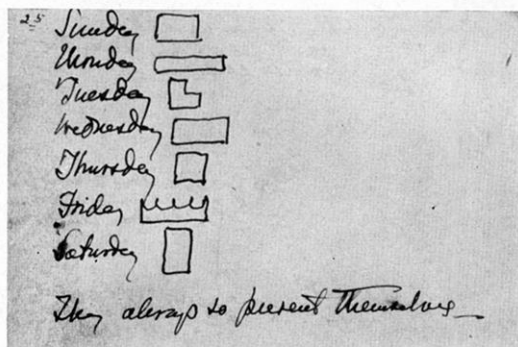 25
Sunday
Monday
Tuesday
Wednesday
Thursday
Friday
Saturday
They always so present themselves